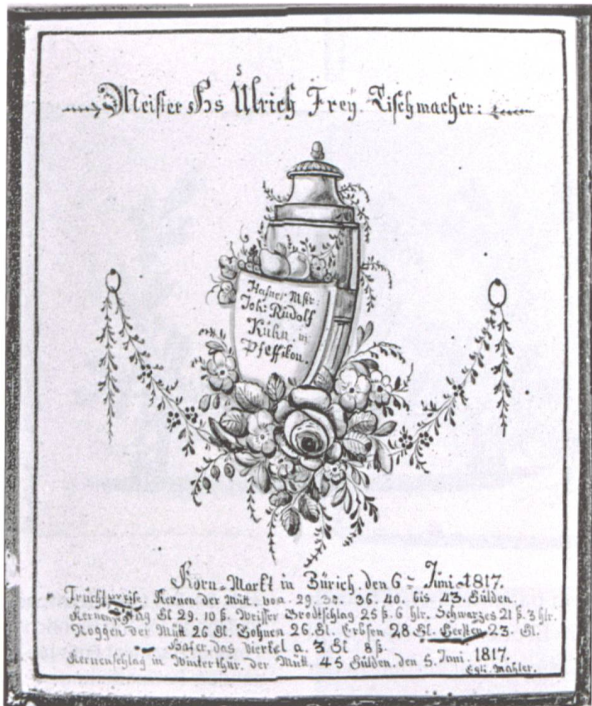 Meister Hs Ulrich Frey. Tischmacher:
Hafner Mstr:
Joh: Rudolf
Kühn. in
Pfeffikon.
Korn-Markt in Zürich, den 6- Juni 1817.
Fruchtpreise: Kernen der Mütt. von 29. 32. 36. 40. bis 43. Gülden.
Gl 29. 10 ß. Weisser Brodtschlag 25 ß. 6 hlr. Schwarzes 21 ß. 3 hlr.
Roggen der Mütt 26 Gl. Bohnen 26. Gl. Erbsen 28 Gl. Gersten 23. Gl.
Hafer, das Viertel a. 3 Gl 8 ß.
Kernenschlag in Winterthur. der Mütt, 45 Gülden, den 5. Juni. 1817.
Egli. Mahler.